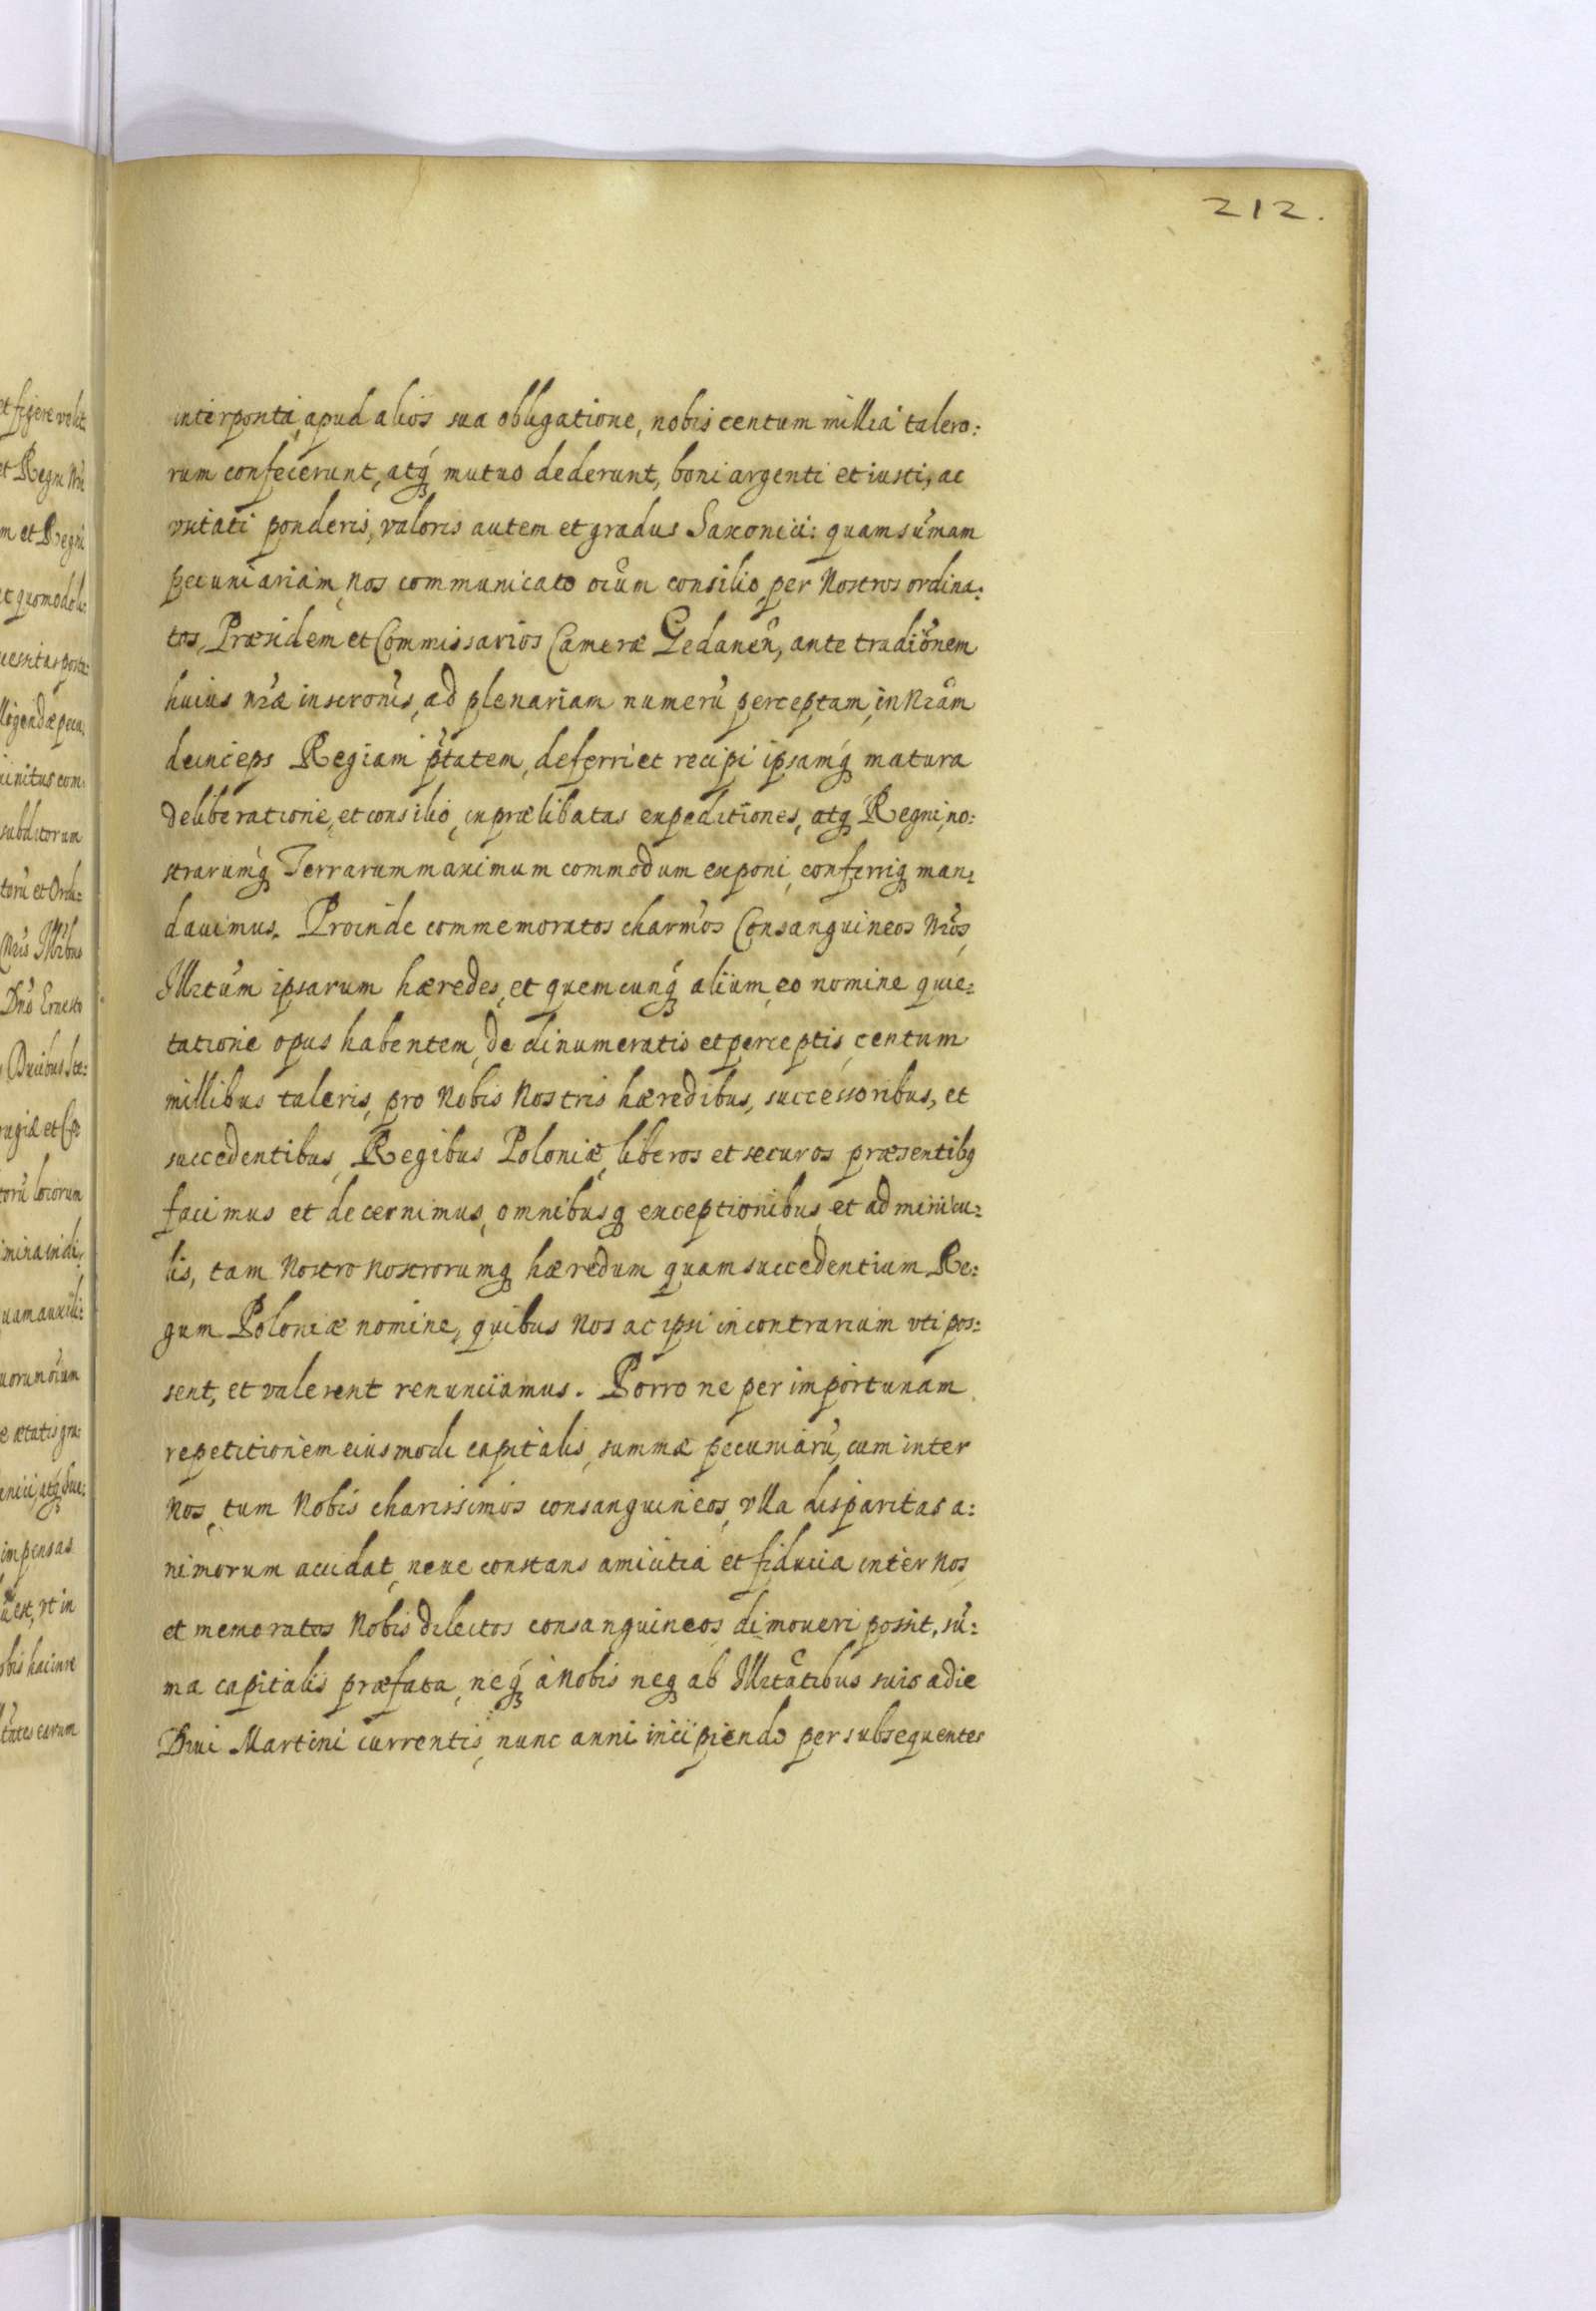 212.
interponta, apud alios sua obligatione, nobis centum millia talero:
rum confecerunt, atq́ mutuo dederunt, boni argenti et iusti, ac
vsitati ponderis, valoris autem et gradus Saxonici: quam sum̃am
pecuniariam, nos communicato oĩum consilio, per Nostros ordina:
tos, Præsidem et Commissarios Cameræ Gedaneñ, ante tradiõnem
huius nr̃æ inscrõnis, ad plenariam numerũ perceptam, in Nr̃am
deinceps Regiam ptãtem, deferri et recipi ipsamq́ matura
deliberatione, et consilio, in prælibatas expeditiones, atq Regni, no:
strarumq́ Terrarum maximum commodum exponi, conferriq man:
dauimus. Proinde commemoratos charm̃os Consanguineos Nr̃os,
Illr̃tum ipsarum hæredes, et quemcunq́ alium, eo nomine quie:
tatione opus habentem, de dinumeratis et perceptis, centum
millibus taleris, pro Nobis Nostris hæredibus, successoribus, et
succedentibus, Regibus Poloniæ, liberos et securos præsentibq
facimus et decernimus, omnibusq exceptionibus, et adminicu:
lis, tam Nostro nostrorumq hæredum quam succedentium Re:
gum Poloniæ nomine, quibus Nos ac ipsi in contrarium vti pos:
sent, et valerent renunciamus. Porro ne per importunam
repetitionem eiusmodi capitalis, summæ pecuniarũ, cum inter
Nos, tum Nobis charissimos consanguineos, vlla disparitas a:
nimorum accidat, neue constans amicitia et fiducia inter Nos,
et memoratos Nobis dilectos consanguineos dimoueri possit, sũ:
ma capitalis præfata, neq́ à Nobis neq ab Illr̃tatibus suis a die
Diui Martini currentis, nunc anni incipiendo per subsequentes